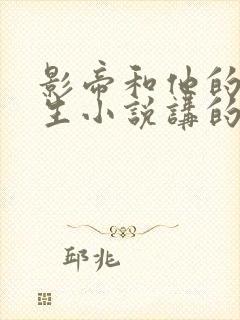 影帝和他的
生小說講的
邱兆